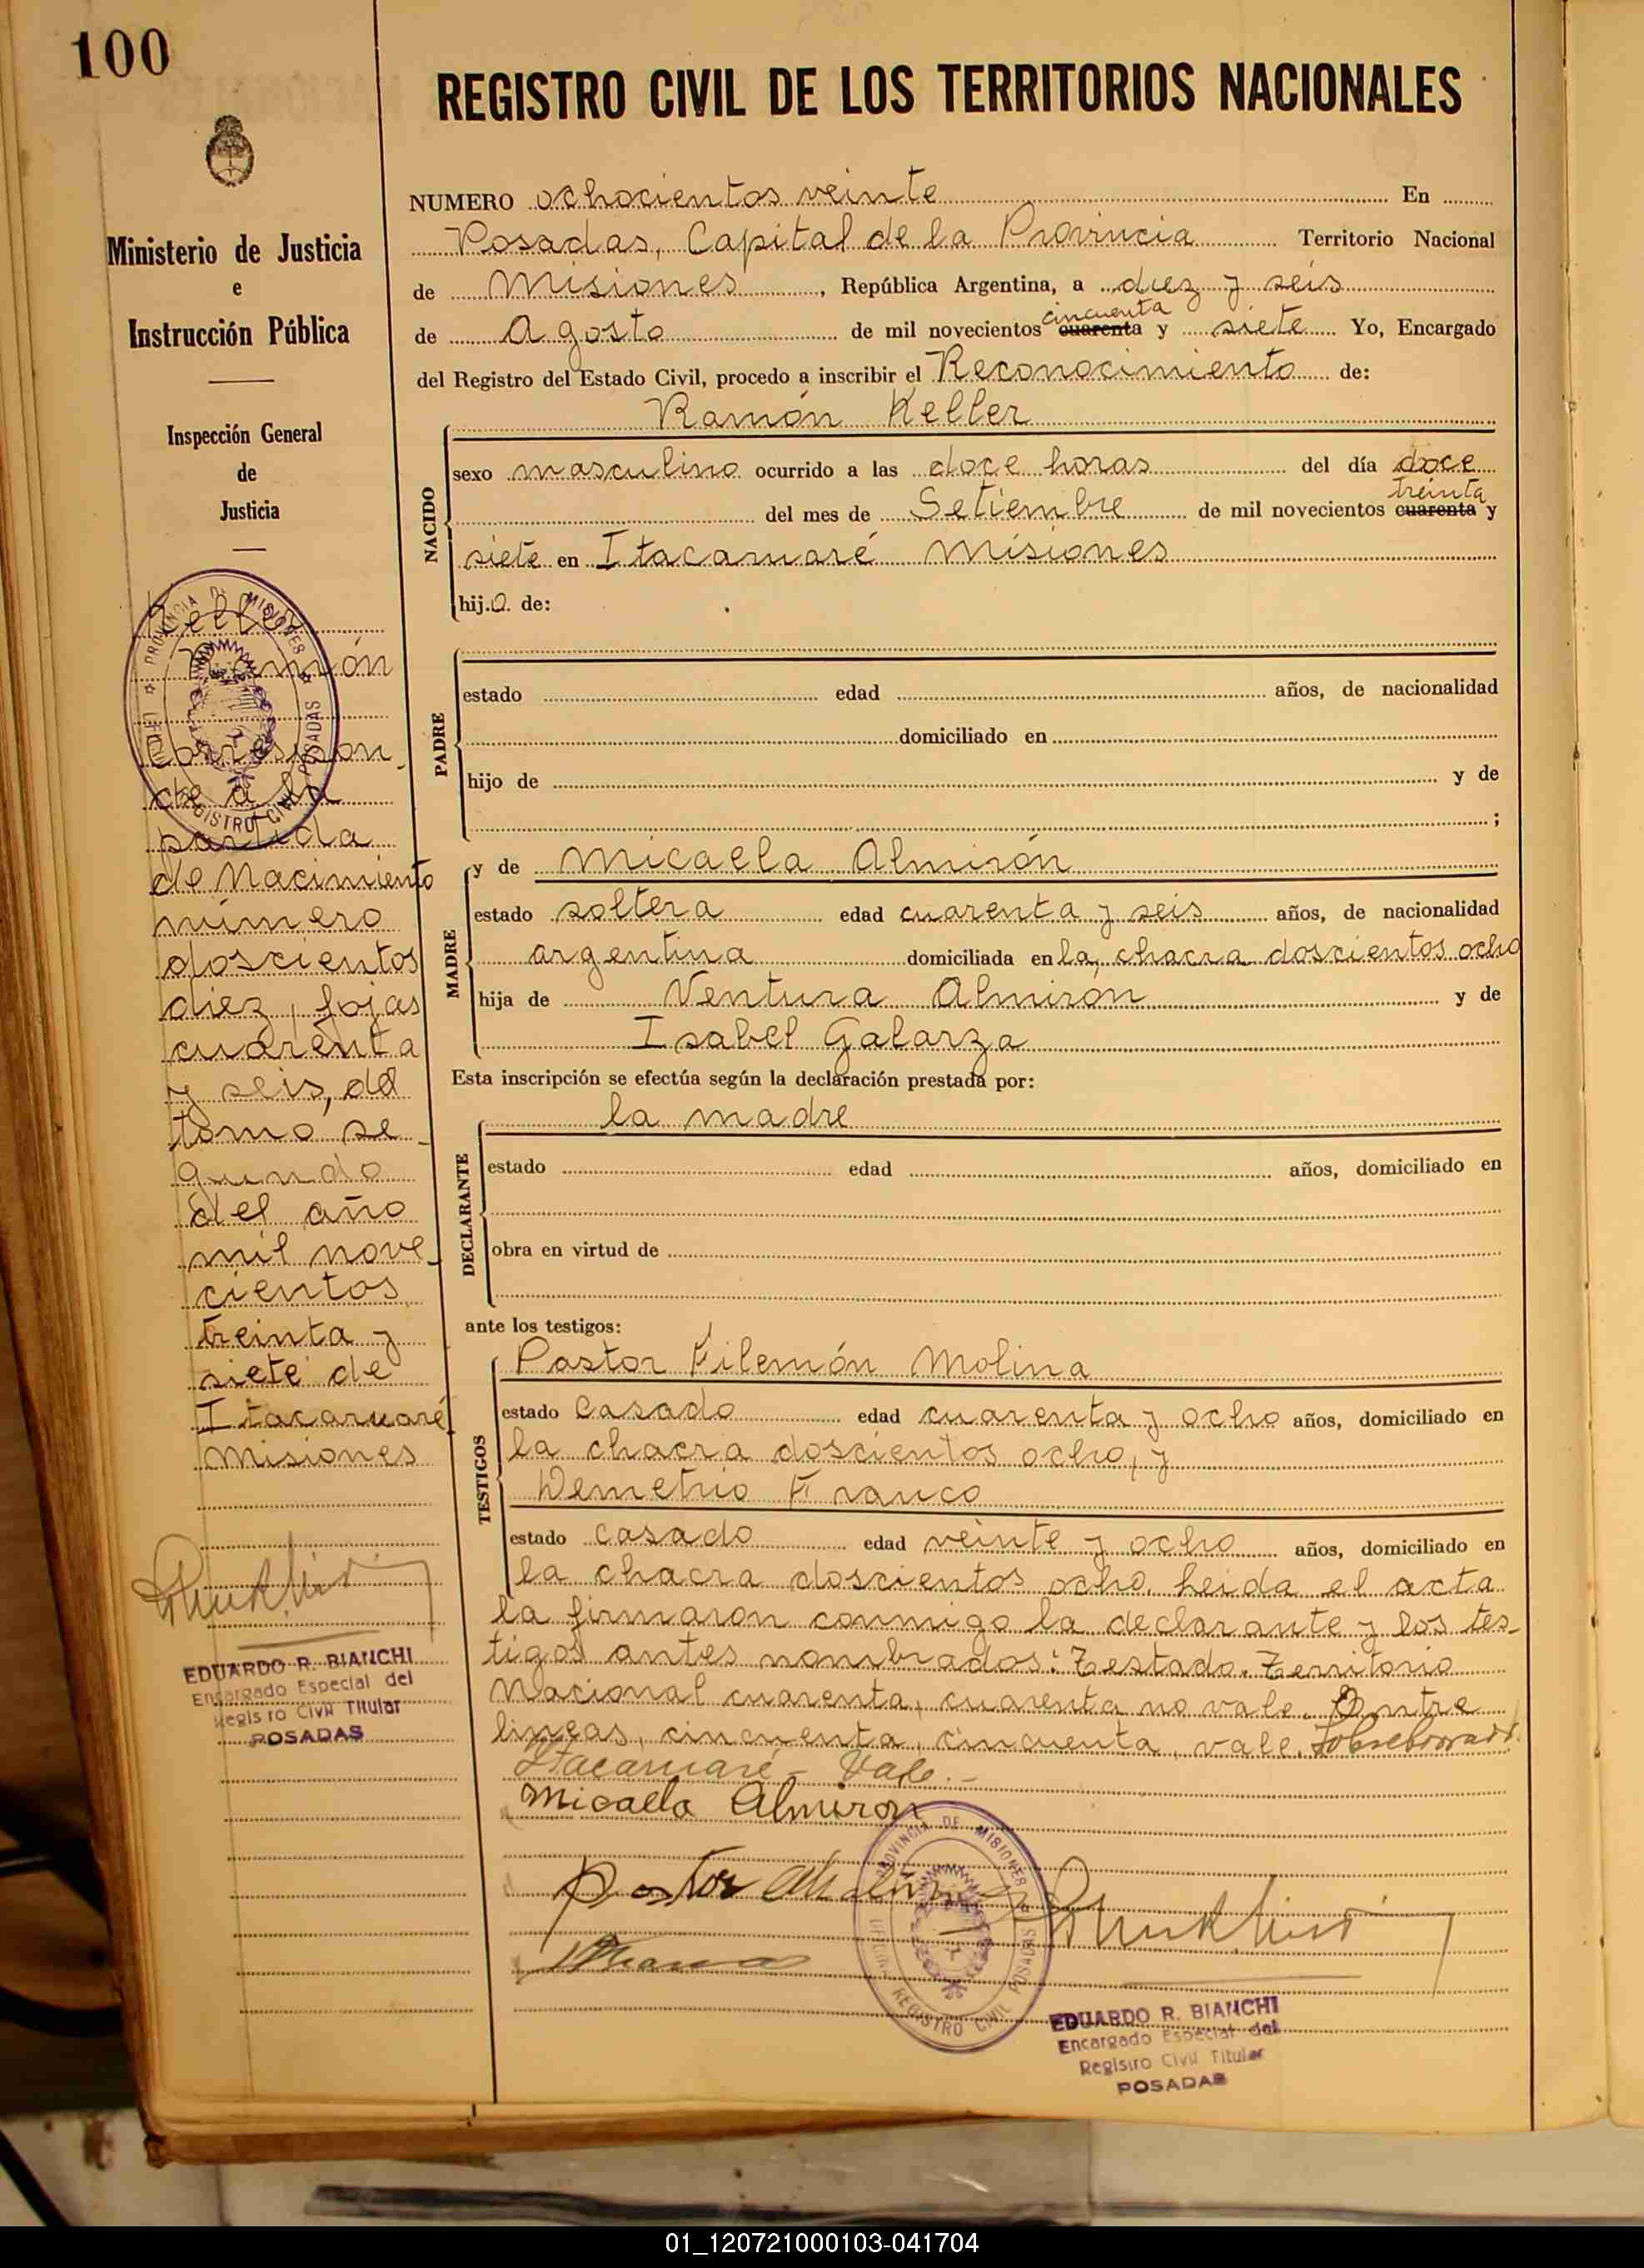 100
REGISTRO CIVIL DE LOS TERRITORIOS NACIONALES
Ministerio de Justicia
e
Instrucción Pública
Inspección General
de
Justicia
Keller
Ramón
Correspon-
de a la
partida
de Nacimiento
número
doscientos
diez, fojas
cuarenta
y seis, del
tomo se-
gundo
del año
mil nove-
cientos
treinta y
siete de
Itacaruaré
Misiones
EDUARDO R. BIANCHI
Encargado Especial del
Registro Civil Titular
POSADAS
NUMERO ochocientos veinte En
Posadas, Capital de la Provincia Territorio Nacional
de Misiones, República Argentina, a diez y seis
cincuenta
de Agosto de mil novecientos cuarenta y siete Yo, Encargado
del Registro del Estado Civil, procedo a inscribir el Reconocimiento de:
Ramón Keller
NACIDO
sexo masculino ocurrido a las doce horas del día doce
treinta
del mes de Setiembre de mil novecientos cuarenta y
siete en Itacaruaré Misiones
hijo de:
PADRE
estado edad años, de nacionalidad
domiciliado en
hijo de y de
;
MADRE
y de Micaela Almirón
estado soltera edad cuarenta y seis años, de nacionalidad
argentina domiciliada en la chacra doscientos ocho
hija de Ventura Almiron y de
Isabel Galarza
Esta inscripción se efectúa según la declaración prestada por:
la madre
DECLARANTE
estado edad años, domiciliado en
obra en virtud de
ante los testigos:
TESTIGOS
Pastor Filemón Molina
estado casado edad cuarenta y ocho años, domiciliado en
la chacra doscientos ocho, y
Demetrio Franco
estado casado edad veinte y ocho años, domiciliado en
la chacra doscientos ocho. Leida el acta
la firmaron conmigo la declarante y los tes-
tigos antes nombrados: Testado. Territorio
Nacional cuarenta, cuarenta no vale. Entre
lineas, cincuenta, cincuenta, vale. Sobreborrado
Itacaruaré - Vale.-
Micaela Almiron
Pastor Molina
PROVINCIA DE MISIONES
REGISTRO CIVIL POSADAS
EDUARDO R. BIANCHI
Encargado Especial del
Registro Civil Titular
POSADAS
01_120721000103-041704